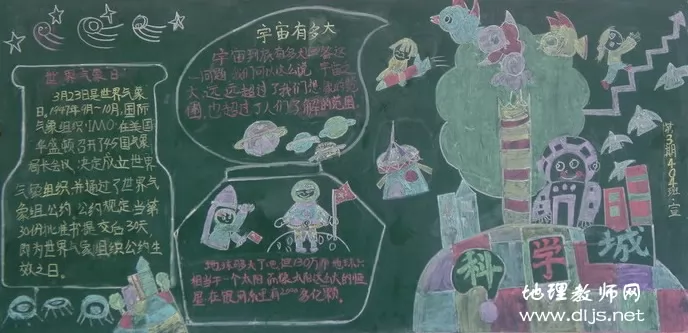 世界气象日
3月23日是世界气象
日。1947年9月~10月,国际
气象组织·IMO·在美国
华盛顿召开了45国气象
局长会议,决定成立世界
气象组织,并通过了世界气
象组公约,公约规定,当第
30份批准书提交后30天,
即为世界气象组织公约生
效之日。
宇宙有多大
宇宙到底有多大回答这
一问题,我们可以这么说,宇宙之
大,远远超过了我们想象的范
围,也超过了人们了解的范围。
地球够大了吧,但130万个地球
相当于一个太阳,而像太阳这么大的恒
星,在银河系里有2000多亿颗。
第3期404班·宣
科学城
地理教师网
www.dljs.net